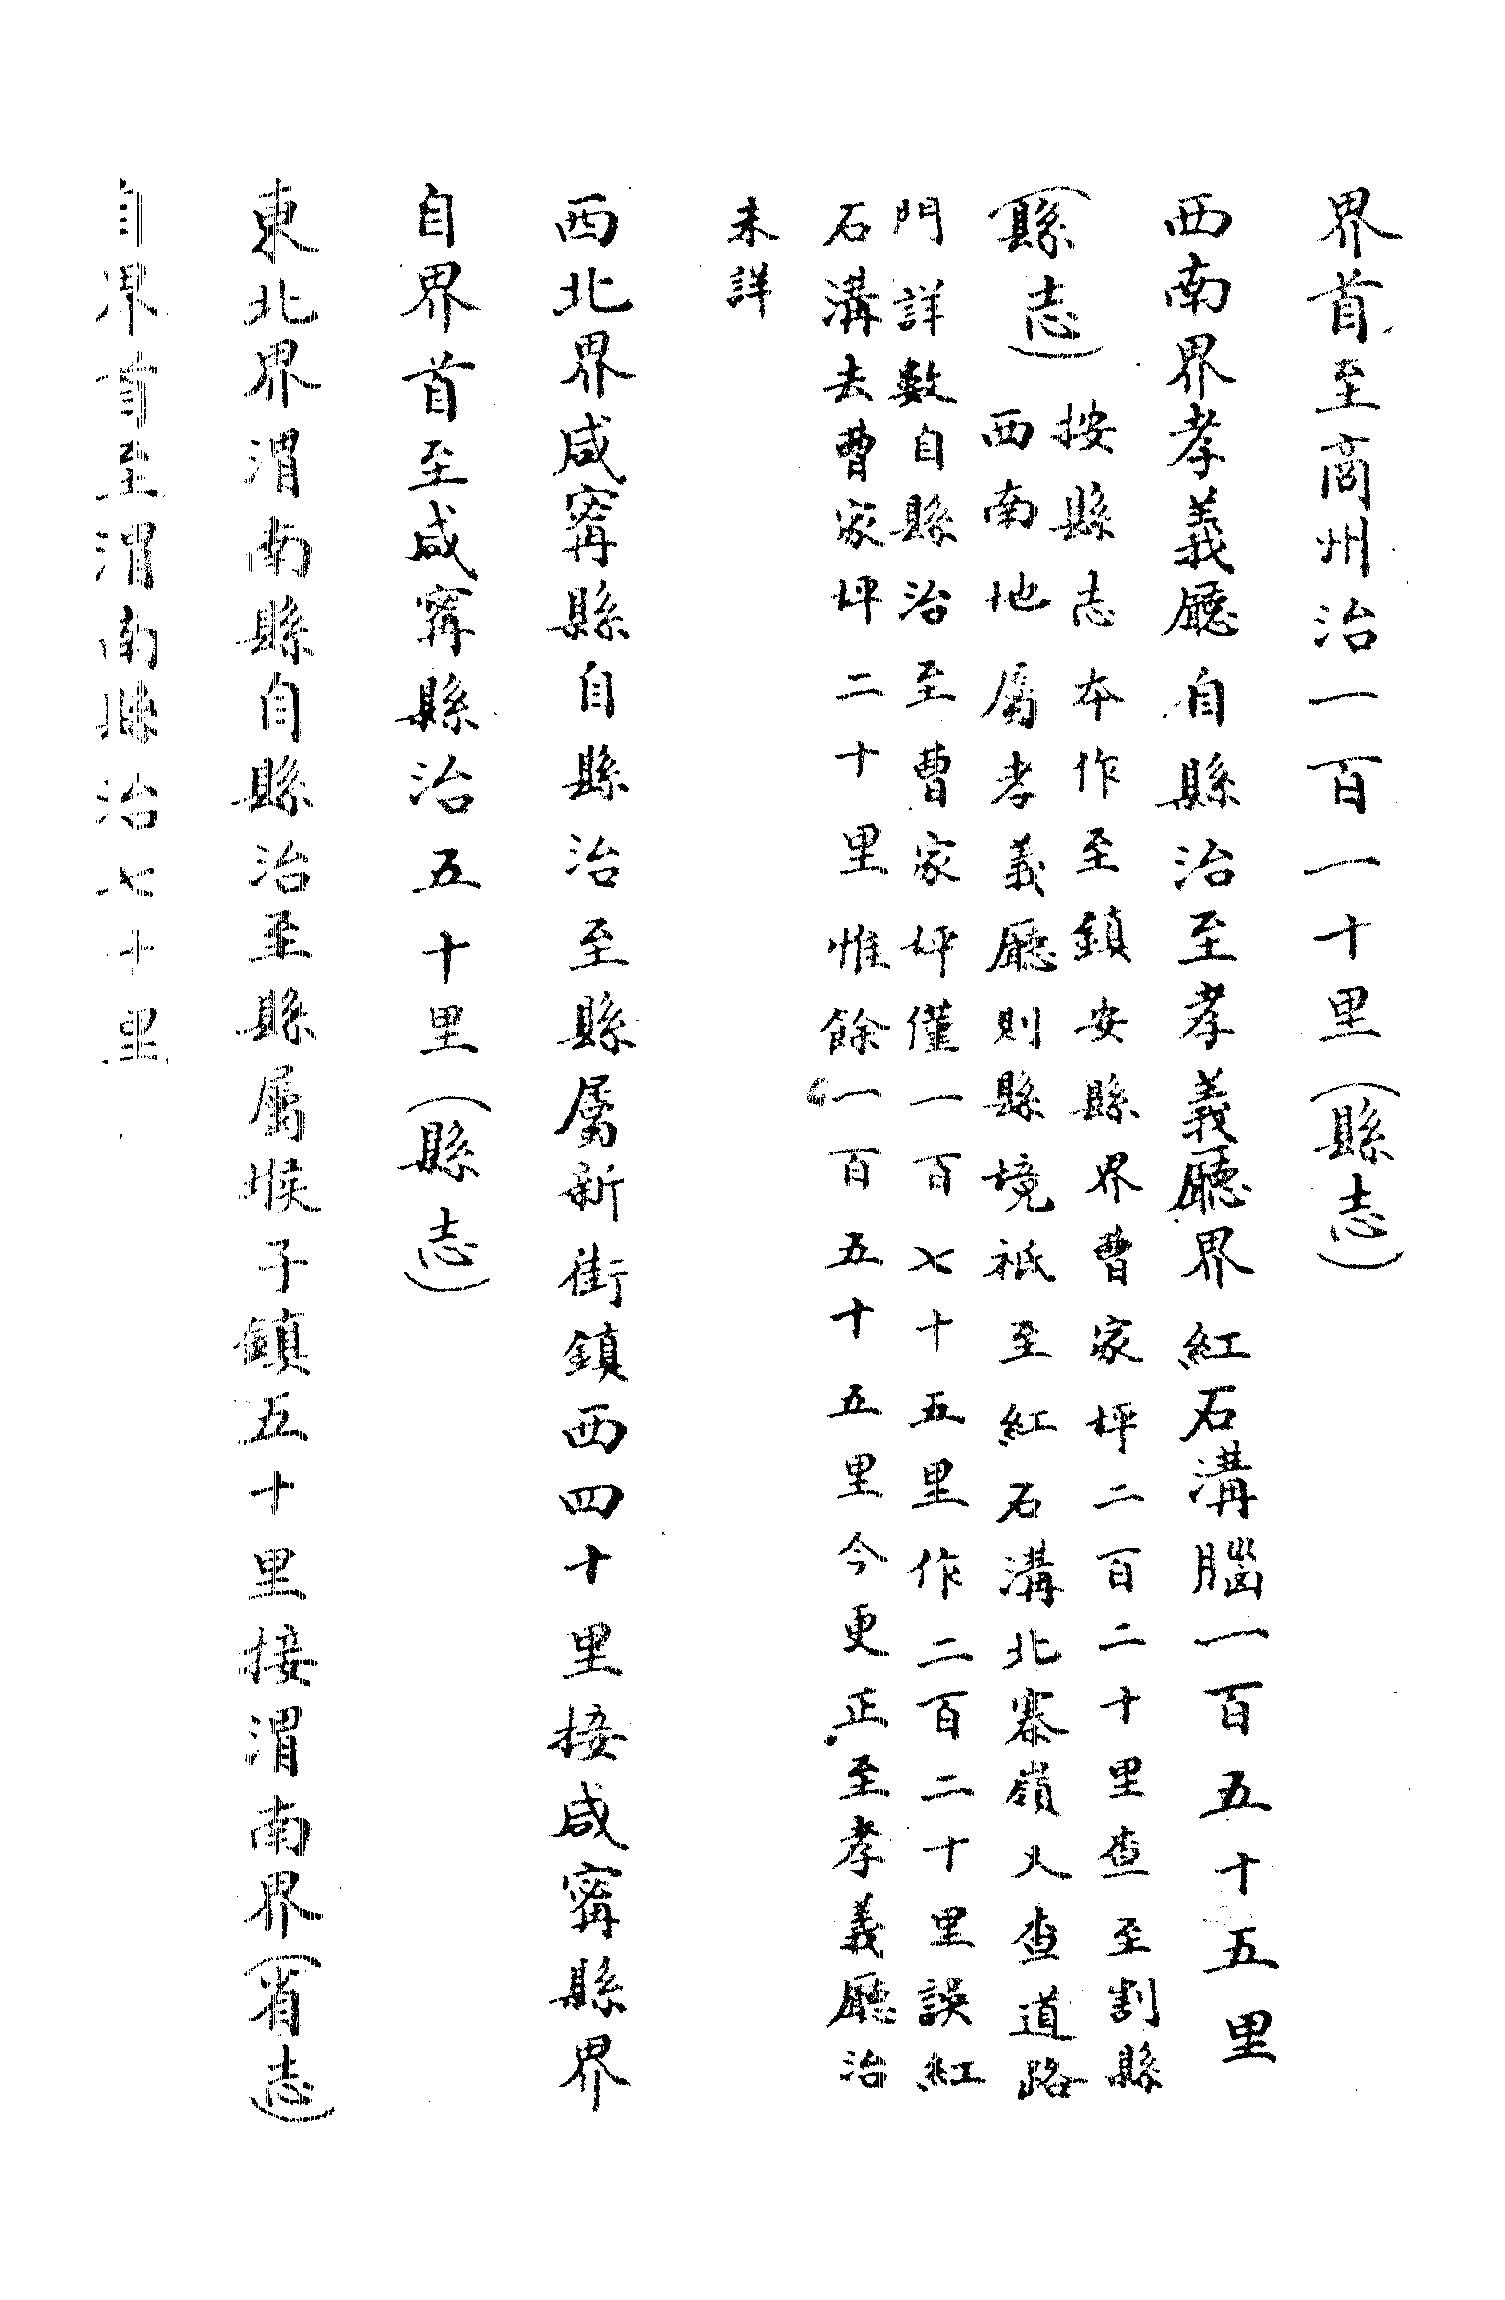 界首至商州治一百一十里（縣志）
西南界孝義廳自縣治至孝義廳界紅石溝腦一百五十五里
（縣志）
按縣志本作至鎮安縣界曹家坪二百二十里查至割縣
西南地屬孝義廳則縣境祇至紅石溝北寨嶺又查道路
門詳數自縣治至曹家坪僅一百七十五里作二百二十里誤紅
石溝去曹家坪二十里惟餘一百五十五里今更正至孝義廳治
未詳
西北界咸寗縣自縣治至縣屬新街鎮西四十里接咸寗縣界
自界首至咸寗縣治五十里（縣志）
東北界渭南縣自縣治至縣屬堠子鎮五十里接渭南界（省志）
自界首至渭南縣治七十里